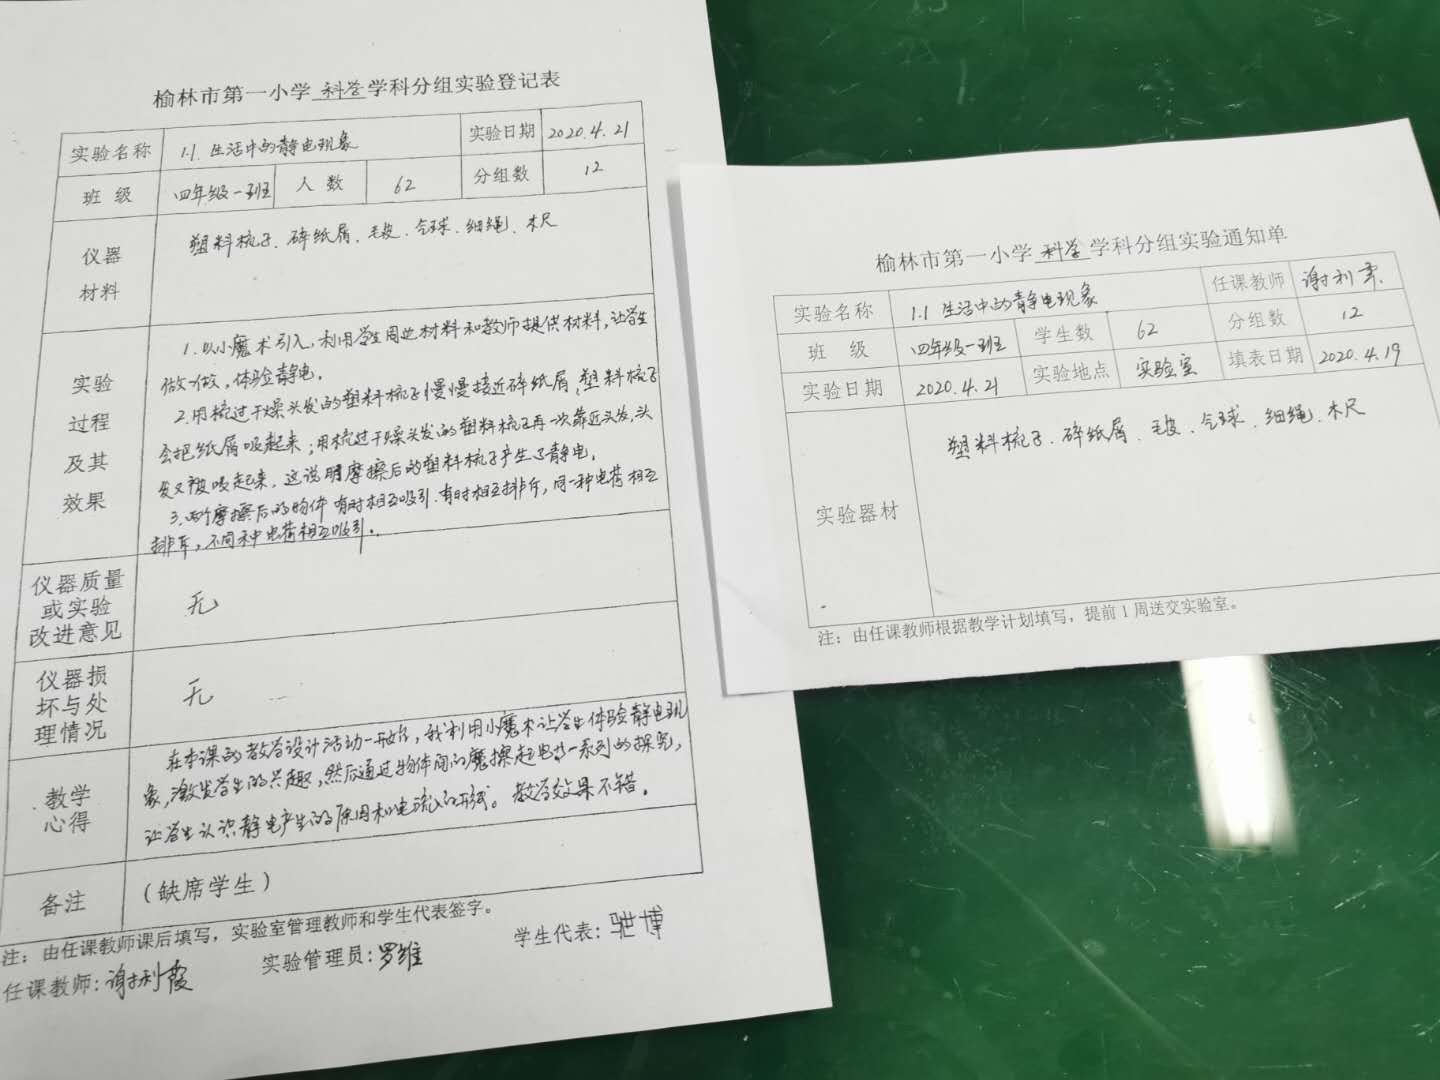 榆林市第一小学 科学 学科分组实验登记表
实验名称 1.1 生活中的静电现象 实验日期 2020.4.21
班 级 四年级一班 人 数 62 分组数 12
仪器
材料
塑料梳子、碎纸屑、毛皮、气球、细绳、木尺
实验
过程
及其
效果
1.以小魔术引入,利用学生周边材料和教师提供材料,让学生
做一做,体验静电.
2.用梳过干燥头发的塑料梳子慢慢接近碎纸屑,塑料梳子
会把纸屑吸起来;用梳过干燥头发的塑料梳子再一次靠近头发,头
发又被吸起来,这说明摩擦后的塑料梳子产生了静电.
3.两个摩擦后的物体有时相互吸引.有时相互排斥,同一种电荷相互
排斥,不同种电荷相互吸引.
仪器质量
或实验
改进意见
无
仪器损
坏与处
理情况
无
教学
心得
在本课的教学设计活动一开始,我利用小魔术让学生体验静电现
象,激发学生的兴趣,然后通过物体间的摩擦起电一系列的探究,
让学生认识静电产生的原因和电流的形成。教学效果不错。
备注 (缺席学生)
注:由任课教师课后填写,实验室管理教师和学生代表签字。
任课教师:谢利霞 实验管理员:罗维 学生代表:驰博
榆林市第一小学 科学 学科分组实验通知单
实验名称 1.1 生活中的静电现象 任课教师 谢利霞
班 级 四年级一班 学生数 62 分组数 12
实验日期 2020.4.21 实验地点 实验室 填表日期 2020.4.19
实验器材 塑料梳子、碎纸屑、毛皮、气球、细绳、木尺
注:由任课教师根据教学计划填写,提前1周送交实验室。